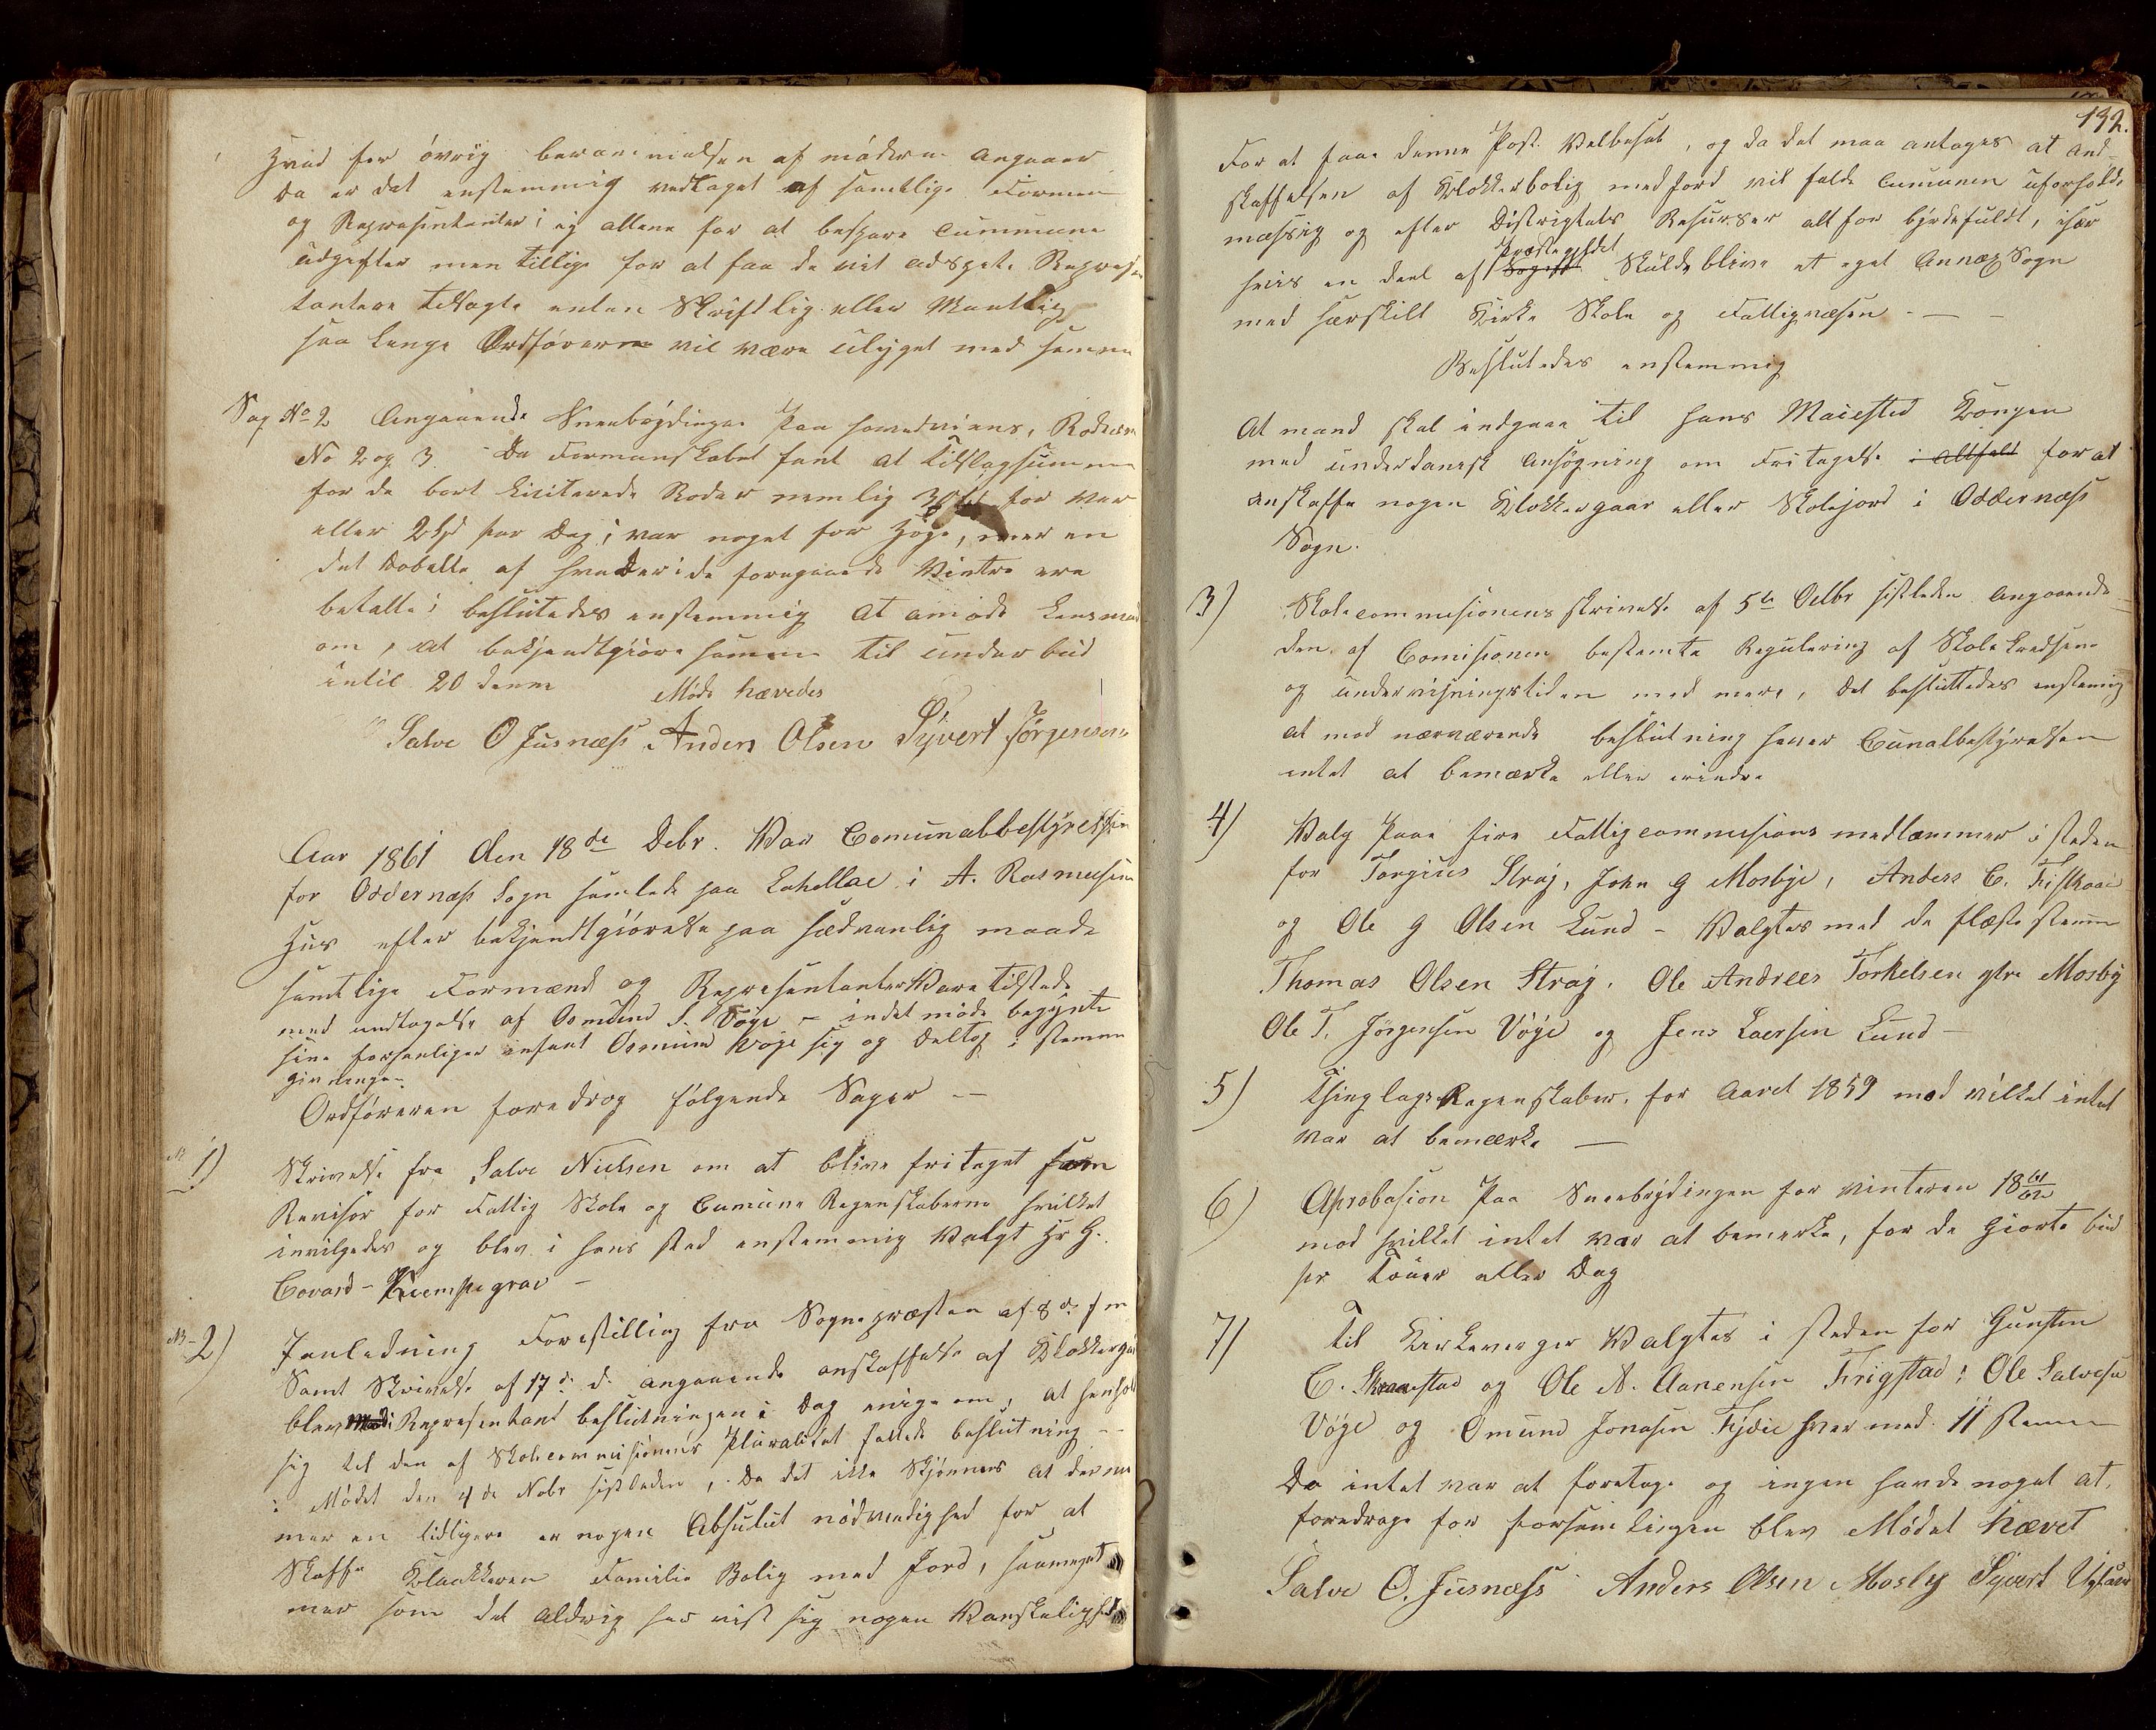 Hvad for övrig berammelsen af møderne angaaer
da er det enstemmig vedtaget af samtlige Formen
og Representanter; ej allene for at bespare Cummune
udgifter men tillige for at faa de vit adspete Represen
tantere tilsagte enten Skriftlig eller Mundtlig
saa lenge Ordførerne vil være tilyget med samme
Sag No 2 Angaaende Sneebrøydingen paa hovedveiens, Roderne
No 2 og 3 Da Formanskabet fant at Tilslagsummen
for de bort liciterede Roder nemlig 30 for var
eller 2 Spd per Dag; var noget for Høge, mer en
det Dobelte af hvad der i de foregaaende Vintre ere
betalte; beslutedes enstemmig at anmode Lensman
om, at bekjendtgiøre samme til under bud
intil 20 denne Møde hævedes
Salve O Jusnæss Anders Olsen Syvert Jörgensen
Aar 1861 den 18de Debr. War Comunalbestyrelsen
for Oddernæss Sogn samlede paa Lahellae i A. Rasmusens
Huus efter bekjendtgiörelse paa sædvanlig maade
samtlige Formænd og Representanter Vare tilstede
med undtagelse af Osmund S. Vöge – indet møde begynte
sine forhanlinger infant Osmund Vöge sig og deltog i stemme
givningen.
Ordföreren foredrog følgende Sager —
1) Skrivelse fra Salve Nielsen om at blive fritaget som
Revisor for Fattig Skole og Cumune Regenskaberne hvilket
invilgedes og blev i hans sted enstemmig Valgt Hr G.
Covard - Kiempegrav —
2) I anledning Forestilling fra Sognepræsten af 8de f m
Samt Skrivelse af 17de d. angaaende anskaffelse af Klokkergaar
blev Representant beslutningen i Dag enige om, at henhold
sig til den af Skolecommisionens Pluralitet fattede beslutning —
i Mødet den 4de Nobr sistleden, Da det ikke Skjønnes at der nu
mer en tidligere er nogen Absolut nödvendighed for at
Skaffe Klaakkeren Familie Bolig med Jord, saameget
mer som det aldrig har vist sig nogen Vanskelighed
132.
For at faae denne Post Velbesat, og da det maa antages at And-
skaffelsen af Klokkerbolig med Jord vil falde Cumunen uforholds
mæssig og efter Distrigtets Resurser alt for byrdefuldt, især
hvis en deel af Sognet Præstegjeldet Skulde blive et eget Annex Sogn
med særskilt Kirke Skole og Fattigvæsen — —
Beslutedes enstemmig
At mand skal indgaae til hans Maiested Kongen
med underdanisk Ansøgning om Fritagelse i altfald for at
anskaffe nogen Klokkergaar eller Skolejord i Oddernæss
Sogn.
3) Skolecommisionens skrivelse af 5te Octbr sistleden angaaende
den af Comisionen bestemte Regulering af Skolekredsene
og undervisningstiden med mere, det besluttedes enstemig
at mod nærværende beslutning haver Cunalbestyrelsen
intet at bemærke eller erindre
4) Valg paa fire Fattigcommisions medlæmmer i steden
for Torgius Straj, John G Mosbye, Anders C. Fiskaae
og Ole G Olsen Lund – Valgtes med de flæste stemme
Thomas Olsen Straj, Ole Andrees Torkelsen ytre Mosby
Ole T. Jörgensen Vöge og Jens Laersen Lund —
5) Thinglags Regenskaber, for Aaret 1859 mod vilket intet
var at bemærke —
6) Aprobasion paa Sneebrøydingen for vinteren 18 61/62
mod hvilket intet var at bemerke, for de giorte bud
per Tour eller Dag
7) Til Kirkeverger Valgtes i steden for Gunsten
C. Skraastad og Ole A. Aanensen Frigstad; Ole Salvesen
Vöge og Omund Jonasen Fidie hver med 11 stemme
Da intet var at foretage og ingen havde noget at
foredrage for forsamlingen blev Mødet hævet
Salve O. Jusnæss Anders Olsen Mosby Syvert